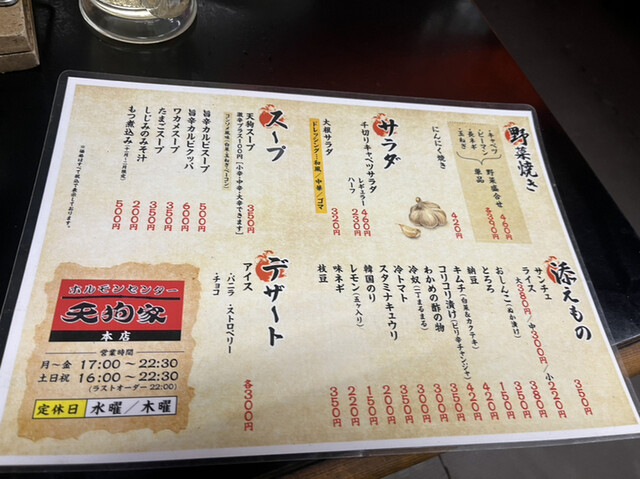 野菜焼き
・キャベツ
・ピーマン
・長ネギ
・玉ねぎ
野菜盛合せ 450円
単品 各390円
にんにく焼き 420円
サラダ
千切りキャベツサラダ
レギュラー 460円
ハーフ 230円
大根サラダ 320円
ドレッシング…和風/中華/ゴマ
スープ
天狗スープ 350円
激辛プラス100円[小辛・中辛・大辛できます]
旨辛カルビスープ 500円
旨辛カルビクッパ 600円
ワカメスープ 350円
たまごスープ 350円
しじみのみそ汁 200円
もつ煮込み 500円
※価格はすべて税込で表示しております。
添えもの
サンチュ 350円
ライス 大380円/中300円/小220円
おしんこ(ぬか漬け) 380円
とろろ 350円
納豆 150円
キムチ(白菜&カクテキ) 420円
コリコリ漬け(ピリ辛チャンジャ) 450円
わかめの酢の物 350円
冷奴(丁まるまる) 300円
冷トマト 350円
スタミナキュウリ 350円
韓国のり 150円
レモン(五ケ入り) 220円
味ネギ 200円
枝豆 350円
デザート
アイス 各300円
・バニラ・ストロベリー
・チョコ
ホルモンセンター
天狗家
本店
営業時間
月〜金 17:00〜22:30
土日祝 16:00〜22:30
(ラストオーダー 22:00)
定休日 水曜/木曜